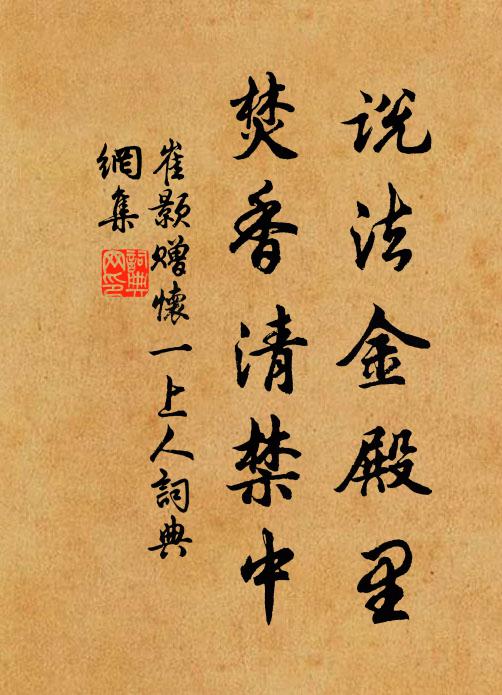 说法金殿里
焚香清禁中
崔颢赠懷一上人詞典
網集
詞典
网印